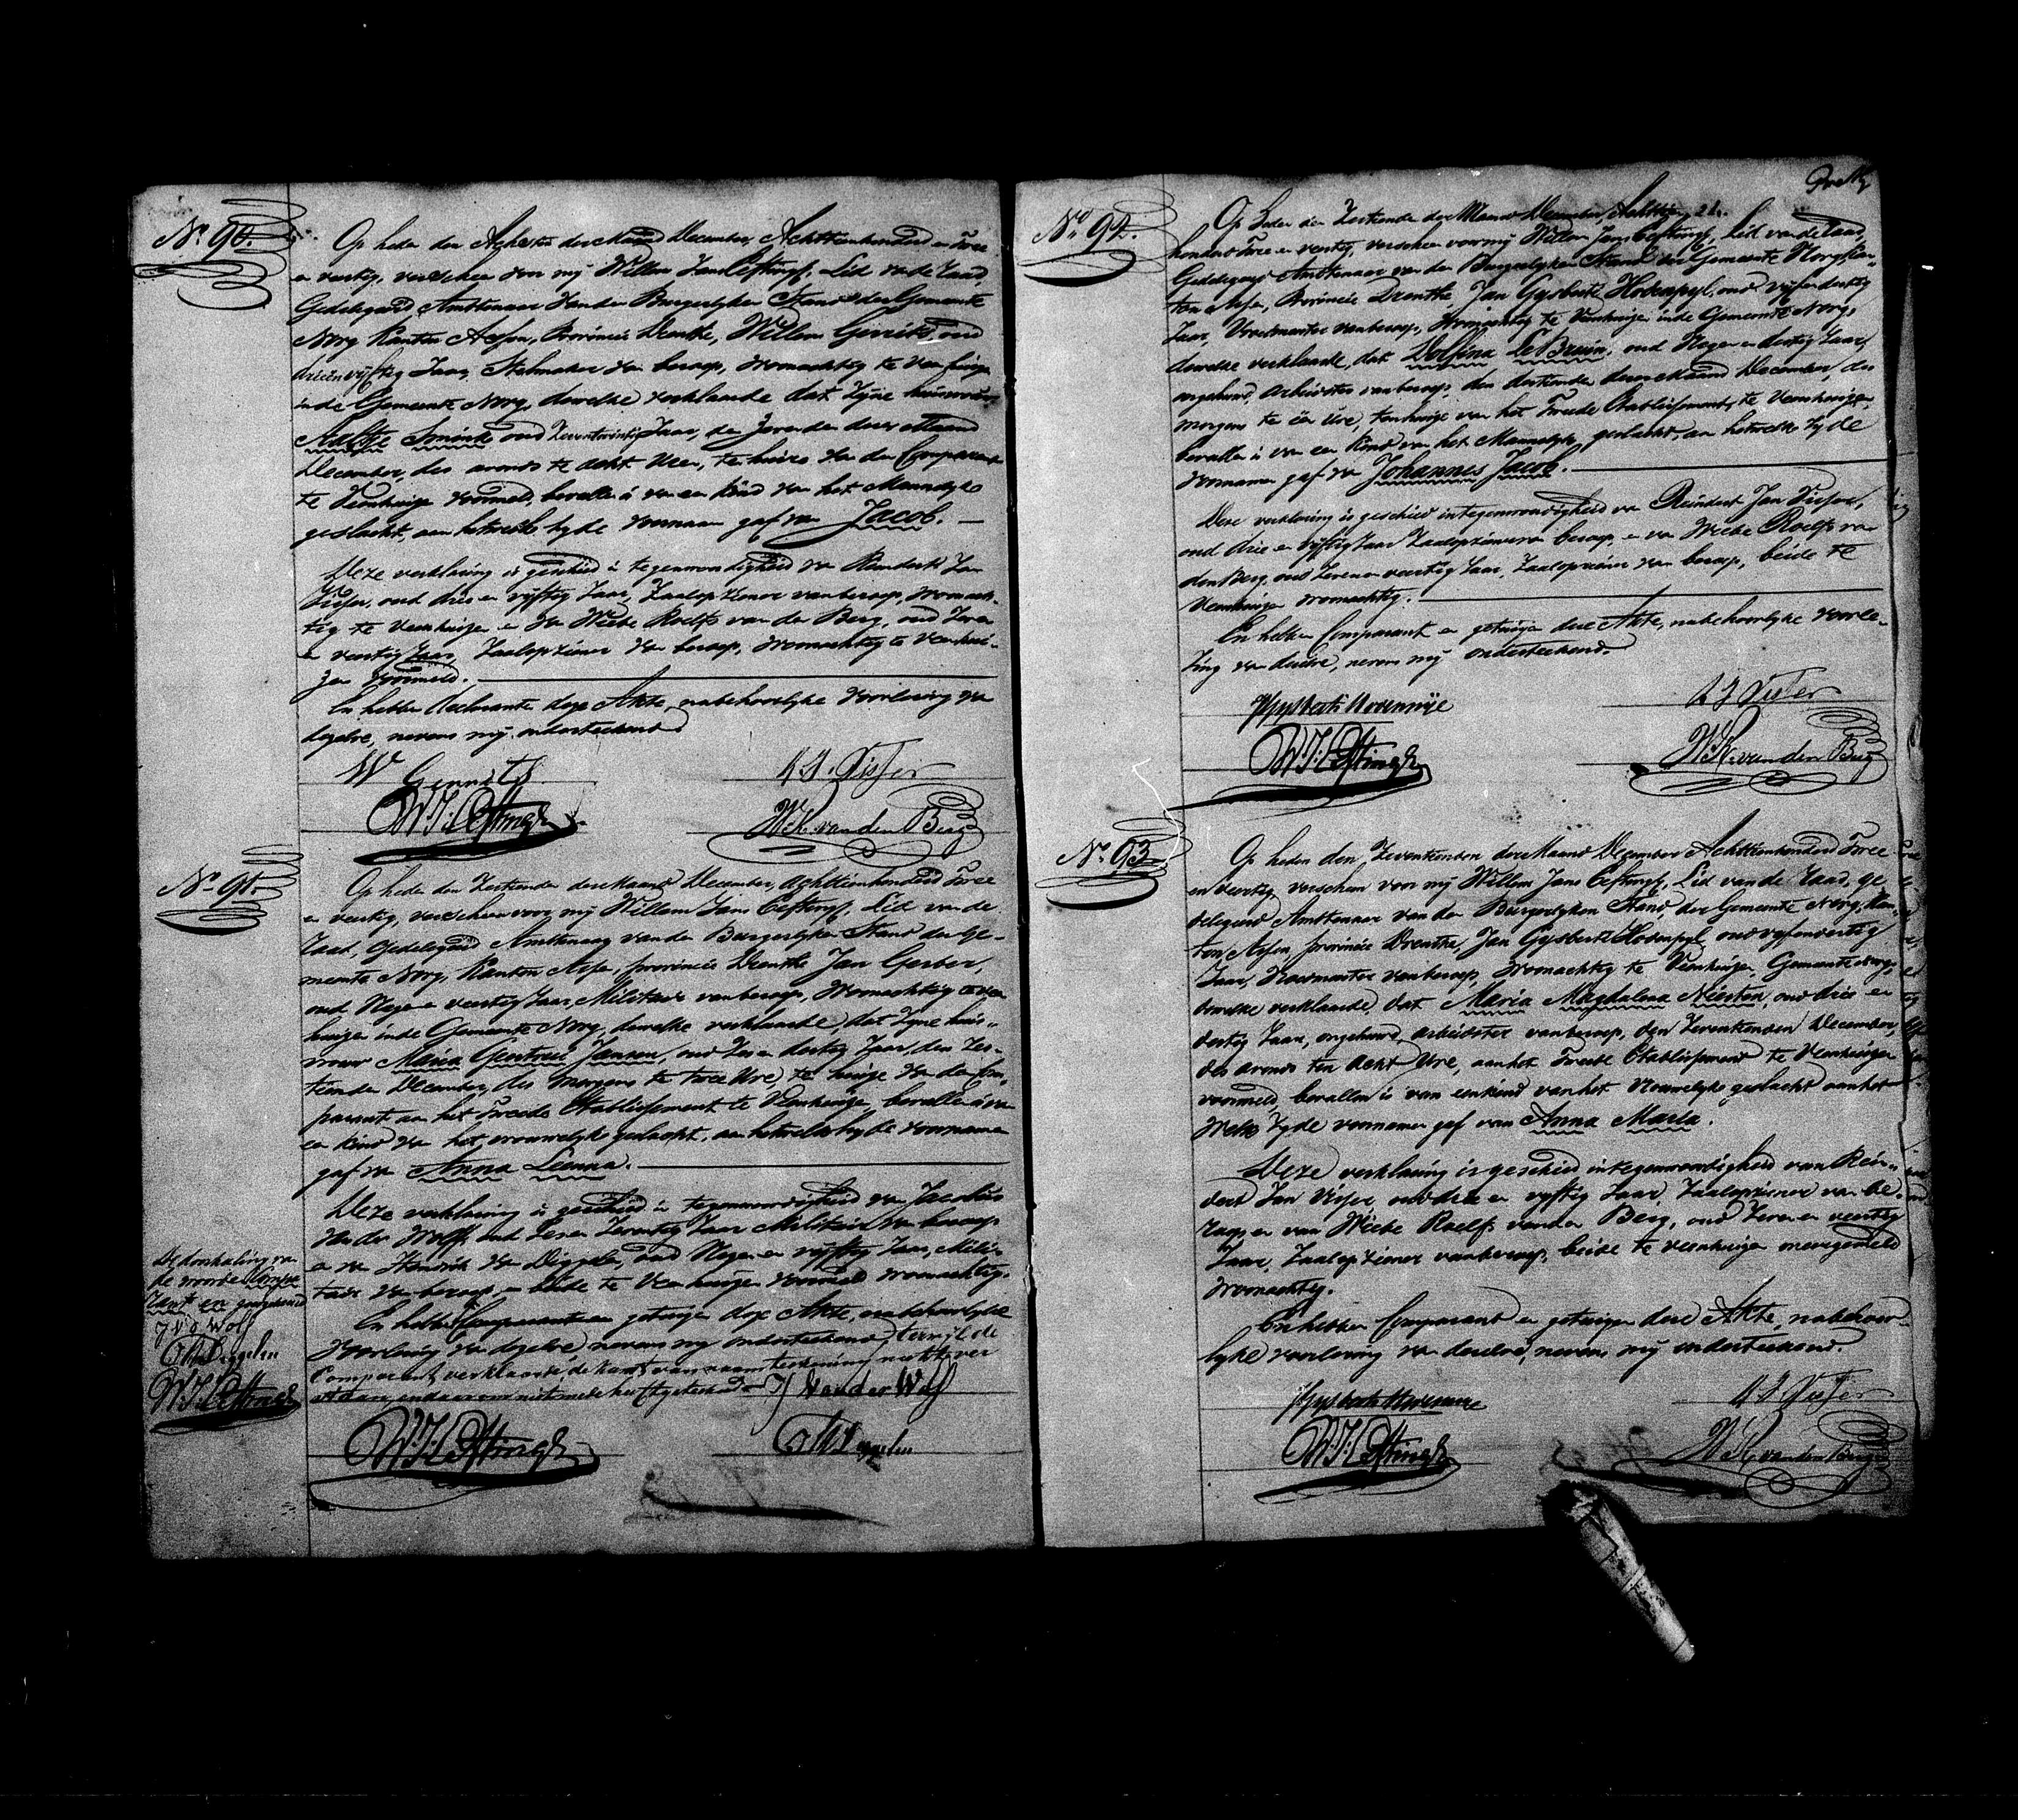 No. 90.
Op heden den Achtste der Maand December, Achttienhonderd en Twee
en veertig, verscheen voor my Willem Jans Oeftingh, Lid van de Raad,
Gedelegeerd Amtenaar van den Burgerlyken Stand der Gemeente
Norg Kanton Assen, Provincie Drenthe, Willem Gerrits oud
drieen vyftig Jaar, Stelmaker van beroep, woonachtig te Veenhuizen
in de Gemeente Norg, dewelke verklaarde dat Zyne huisvrouw
Smink oud Jaar, den Zevenden dezer Maand
December, des avonds te acht Uren, ten huize van den Comparant
te Veenhuizen voormeld, bevallen is van een Kind van het Mannelyke
geslacht, aan hetwelk hy de voornaam gaf van Jacob. —
Deze verklaring is geschied in tegenwoordigheid van Reindert Jan
Visser, oud drie en vyftig Jaar, Zaalopziener van beroep, woonach-
tig te Veenhuizen en van Wiebe Roelfs van den Berg, oud Zeven
en veertig Jaar, Zaalopziener van beroep, woonachtig te Veenhui-
zen voormeld. —
En hebben deze Akte, na behoorlyke voorlezing van
dezelve, nevens my onderteekend
W Gerrits
R J. Visser
W: J: Oeftingh
W. R. van den Berg
No. 91.
Op heden den Zestienden der Maand December, achttienhonderd Twee
en veertig, verscheen voor my Willem Jans Oeftingh, Lid van de
Raad, Gedelegeerd Amtenaar van den Burgerlyken Stand der Ge-
meente Norg, Kanton Assen, provincie Drenthe Jan Gerber,
oud Negen en veertig Jaar, Militair van beroep, Woonachtig te Veen
huizen in de Gemeente Norg, dewelke verklaarde, dat Zyne huis-
vrouw Maria Geertrui Jansen, oud Zes en dertig Jaar, den Zes-
tienden December, des morgens te twee Ure, te huize van den Com-
parant aan het Tweede Etablissement te Veenhuizen, bevallen is van
een Kind van het vrouwelyke geslacht, aan hetwelk hy de voornamen
gaf van Anna Leenna. —
Deze verklaring is geschied in tegenwoordigheid van Jacobus
van der Wolff, oud Zes en Zeventig Jaar Militair van beroep
en van Hendrik van Diggelen, oud Negen en vyftig Jaar, Mili-
tair van beroep, beide te Veenhuizen voormeld woonachtig.
En hebben Comparant en getuigen deze Akte, na behoorlyke
Voorlezing van dezelve, nevens my onderteekend, terwyl de
Comparant verklaarde, de kunst van naamteekening niet te ver
staan, en daarom niet mede heeft geteekend — J Van der Wolf
W: J: Oeftingh
De doorhaling van
de woorden Compa-
rant en goedgekeurd
J v d Wolf
W: J: Oeftingh
No. 92.
Op heden den Zestienden der Maand December, Achttien
honderd Twee en veertig, verscheen voor my Willem Jans Oeftingh, Lid van de Raad,
Gedelegeerd Amtenaar van den Burgerlyken Stand der Gemeente Norg, Kan-
ton Assen, Provincie Drenthe Jan Gysberti Hodenpyl, oud vyf en dertig
Jaar, Vroedmeester van beroep, Woonachtig te Veenhuizen in de Gemeente Norg,
dewelke verklaarde, dat Dolfina de Bruin, oud Negen en dertig Jaar,
ongehuwd, Arbeidster van beroep, den dertienden dezer Maand December, des
morgens te een Ure, ten huize van het Tweede Etablissement, te Veenhuizen
bevallen is van een Kind van het Mannelyke geslacht, aan hetwelk hy de
voornamen gaf van Johannes Jacob. —
Deze verklaring is geschied in tegenwoordigheid van Reindert Jan Visser,
oud drie en vyftig Jaar Zaalopziener van beroep, en van Wiebe Roelfs van
den Berg, oud Zeven en veertig Jaar, Zaalopziener van beroep, beide te
Veenhuizen woonachtig. —
En hebben Comparant en getuigen deze Akte, na behoorlyke voorle-
zing van dezelve, nevens my onderteekend.
R J Visser
W: J: Oeftingh
W. R. van den Berg
No. 93.
Op heden den Zeventienden der Maand December Achttienhonderd Twee
en veertig, verscheen voor my Willem Jans Oeftingh, Lid van de Raad, ge
delegeerd Amtenaar van den Burgerlyken Stand, der Gemeente Norg, Kan-
ton Assen, provincie Drenthe, Jan Gysberti Hodenpyl, oud vyf en dertig
Jaar, van beroep, Woonachtig te Veenhuizen, Gemeente Norg,
dewelke verklaarde, dat Maria Magdalena Niesten, oud drie en
dertig Jaar, ongehuwd, arbeidster van beroep, den Zeventienden December,
des avonds ten acht Ure, aan het Tweede Etablissement te Veenhuizen
voormeld, bevallen is van een kind van het Vrouwelyke geslacht aan het
welk hy de voornamen gaf van Anna Maria.
Deze verklaring is geschied in tegenwoordigheid van Rein-
dert Jan Visser, oud drie en vyftig Jaar, Zaalopziener van be-
roep, en van Wiebe Roelfs van den Berg, oud Zeven en veertig
Jaar, Zaalopziener van beroep, beide te Veenhuizen
woonachtig.
En hebben Comparant en getuigen deze Akte, na behoor-
lyke voorlezing van dezelve, nevens my onderteekend.
R J Visser
W: J: Oeftingh
W. R. van den Berg